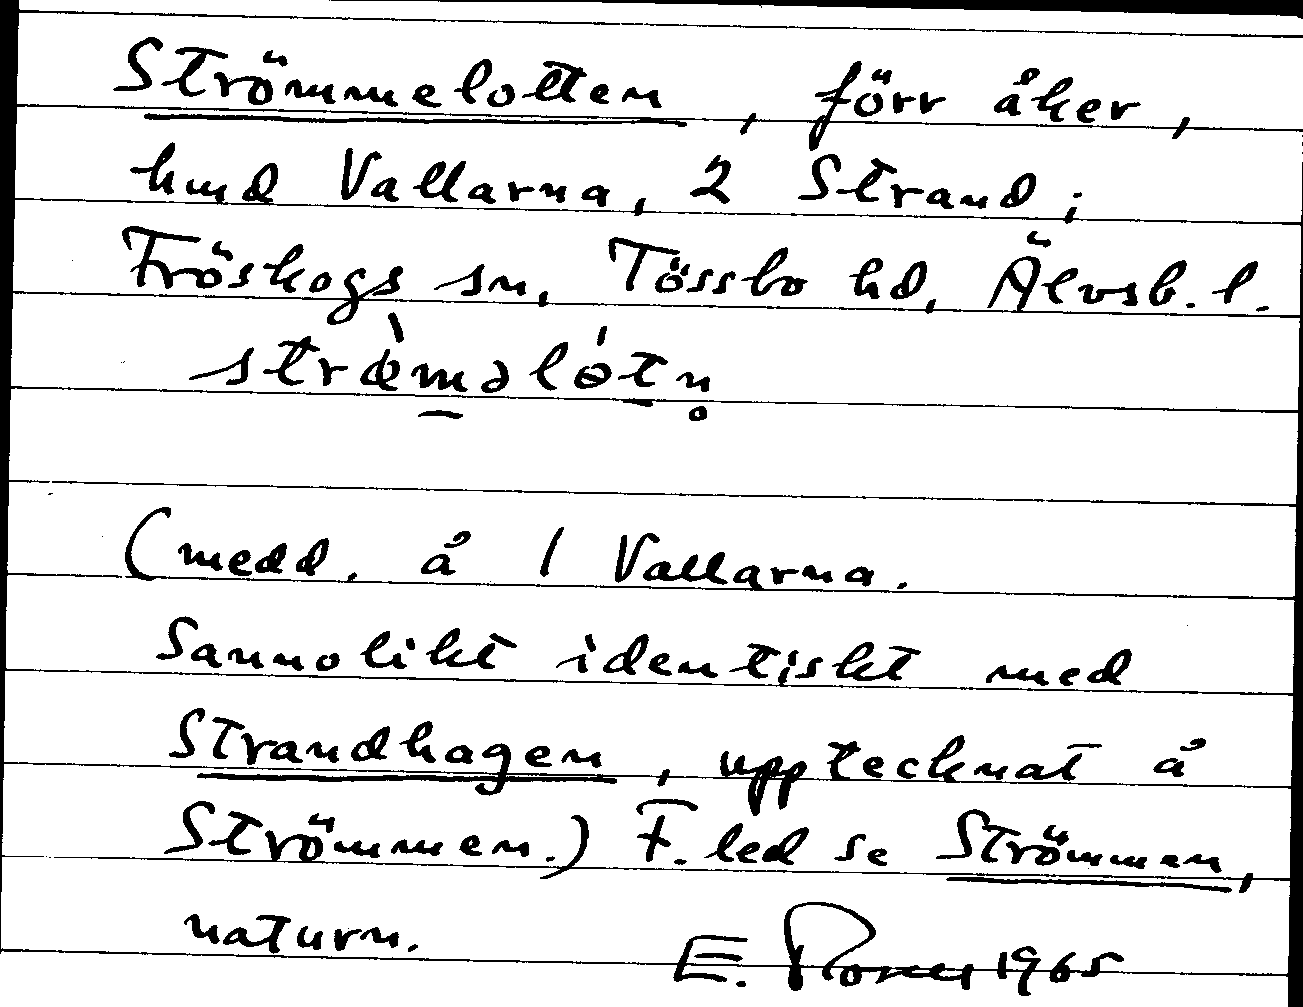 Strömmelotten, förr åker,
hmd Vallarna, 2 Strand;
Fröskogs sn, Tössbo hd, Älvsb. l.
strø̀m̲əlót̲n̥
(medd. å 1 Vallarna.
Sannolikt identiskt med
Strandhagen, upptecknat å
Strömmen.) F. led se Strömmen,
naturn.
E. 1965